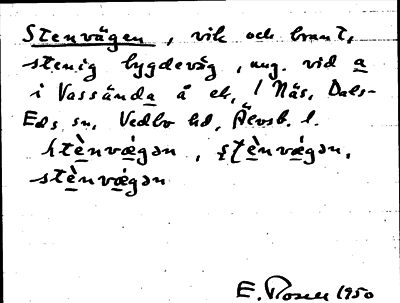 Stenvägen, vik och brant,
stenig bygdeväg, ung. vid a
i Vassända å ek, / Näs, Dals-
Eds sn, Vedbo hd, Älvsb. l.
stènvǽgən, stènvǽgən,
stènvǽgən
E. Rosell 1950